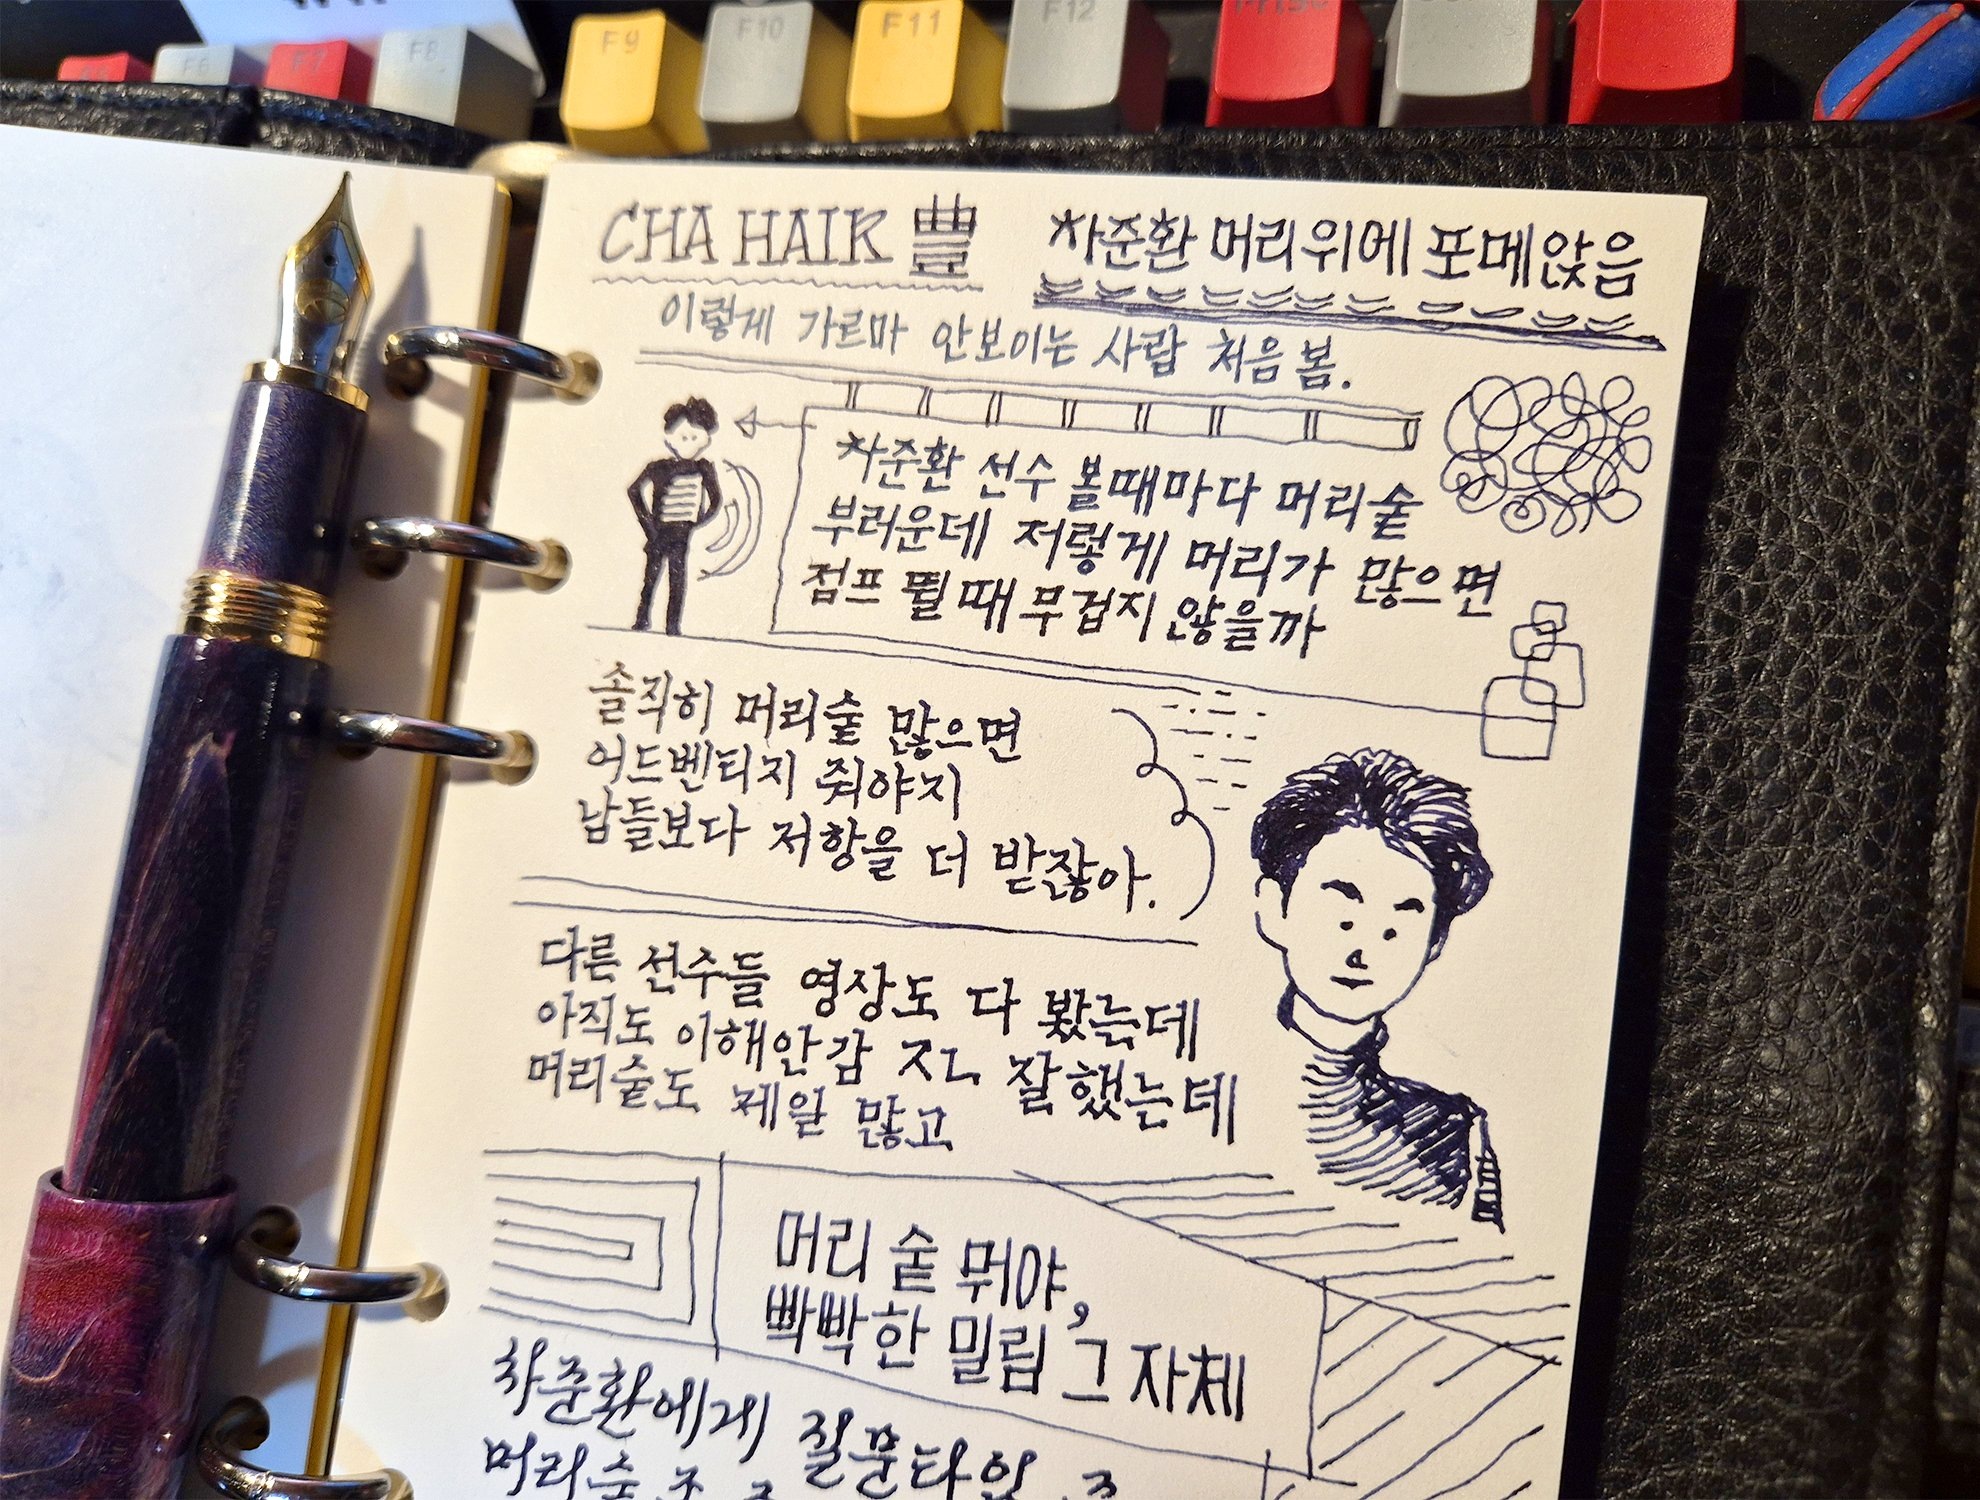 F9 F10 F11 F12
F7 F8
CHA HAIR 豊
차준환 머리위에 포메앉음
이렇게 가르마 안보이는 사람 처음 봄.
차준환 선수 볼때마다 머리숱
부러운데 저렇게 머리가 많으면
점프 뛸때 무겁지 않을까
솔직히 머리숱 많으면
어드벤티지 줘야지
남들보다 저항을 더 받잖아.
다른 선수들 영상도 다 봤는데
아직도 이해안감 지ㄴ 잘했는데
머리숱도 제일 많고
머리 숱 뭐야,
빡빡한 밀림 그 자체
차준환에게 질문타임
머리숱